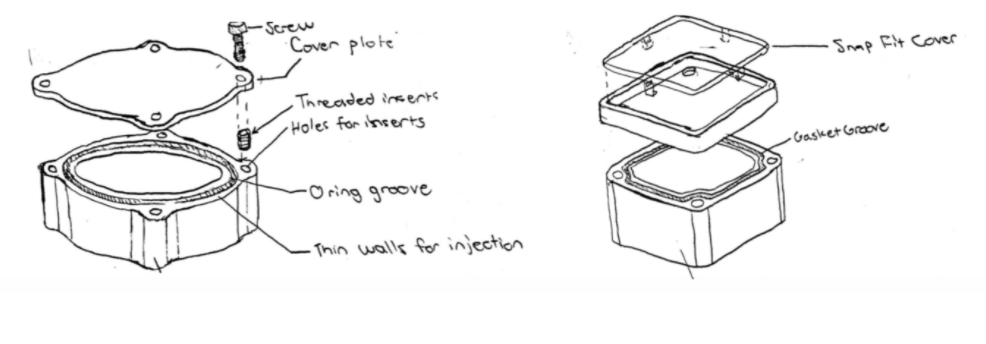 Screw
Cover plate
Threaded inserts
Holes for inserts
O ring groove
Thin walls for injection
Snap Fit Cover
Gasket Groove